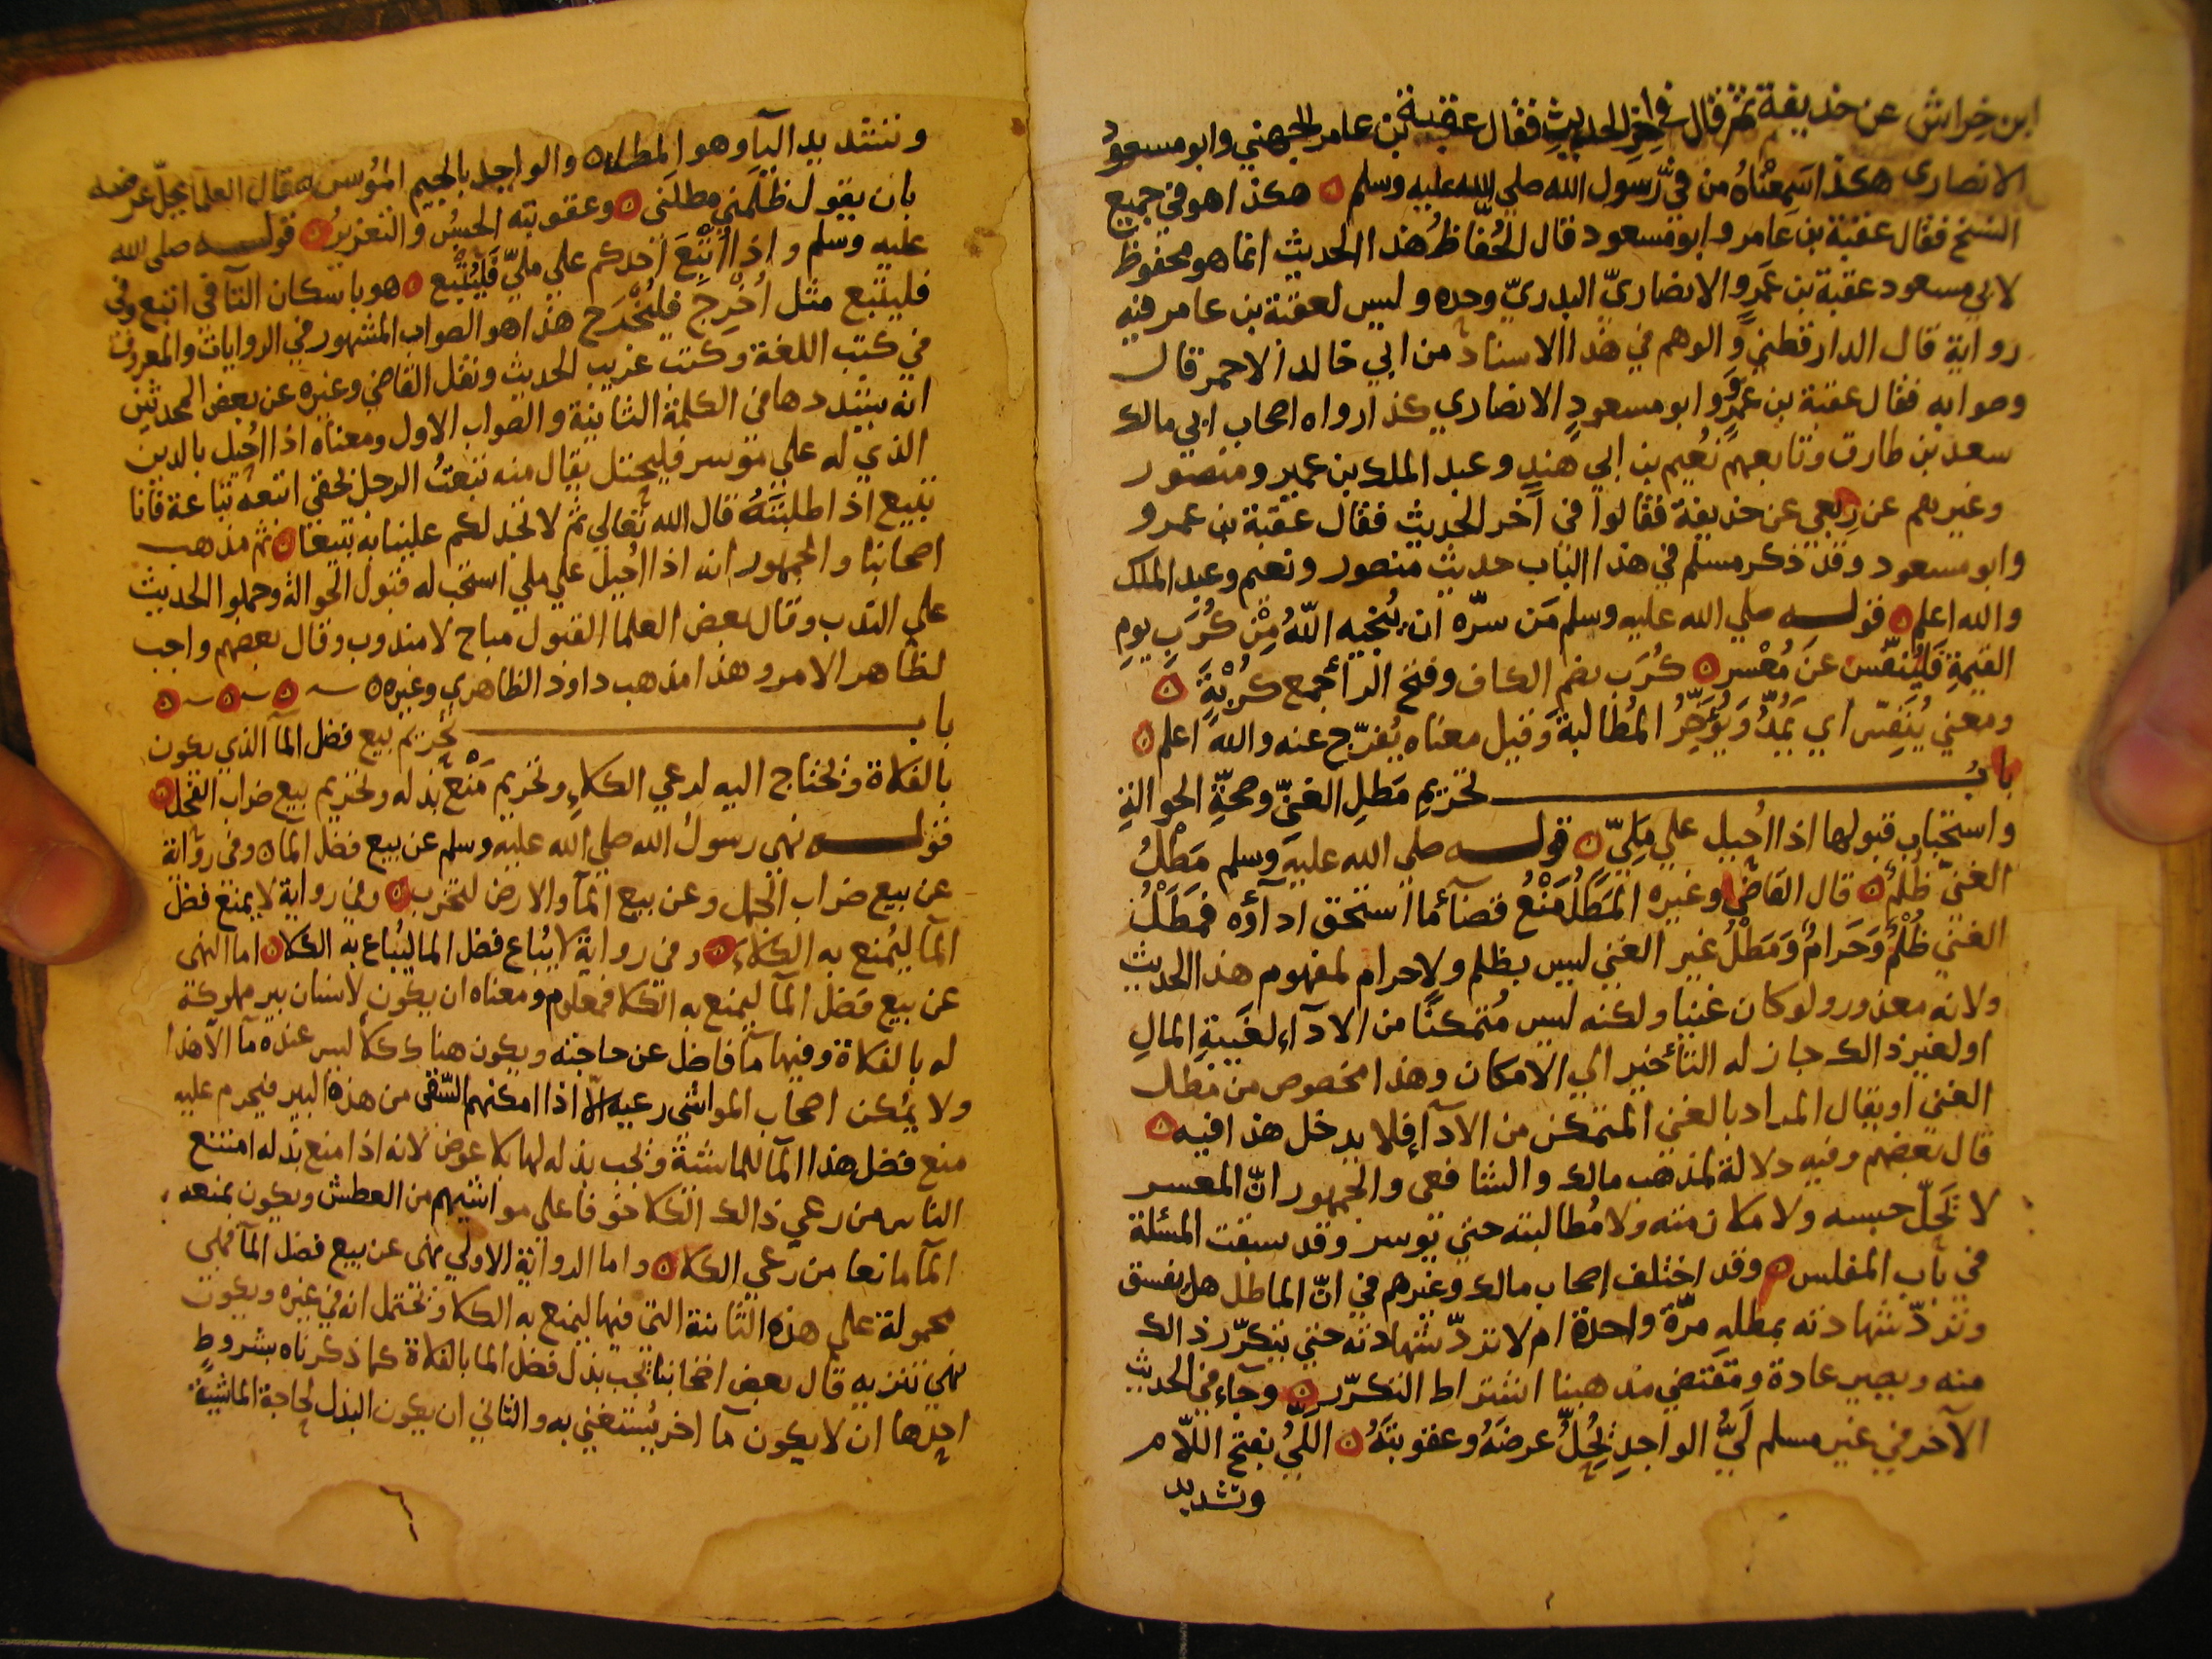 ابن خراش عن حذيفة ثم قال في اخر الحديث فقال عقبة بن عامر الجهني وابو مسعود
الانصارى هكذا سَمِعْناهُ من فيّ رسول الله صلى الله عليه وسلم ه هكذا هو في جميع
النسخ فقال عقبة بن عامر وابو مسعود قال الحُفّاظُ هذا الحديث انما هو محفوظ
لابي مسعود عقبة بن عَمرٍو الانصاريّ البدريّ وحده وليس لعقبة بن عامر فيه
رواية قال الدارقطني والوهم في هذا الاسناد من ابي خالد الاحمر قال
وصوابه فقال عقبة بن عَمرٍو وابو مسعودٍ الانصاري كذا رواه اصحاب ابي مالك
سعد بن طارق وتابعهم نُعيم بن ابي هندٍ وعبد الملك بن عمير ومنصور
وغيرهم عن رِبعي عن حذيفة فقالوا في آخر الحديث فقال عقبة بن عمرو
وابو مسعود وقد ذكر مسلم في هذا الباب حديث منصور ونعيم وعبد الملك
والله اعلم ه قولـــه صلي الله عليه وسلم مَن سرّه ان يُنْجِيَه اللّهُ مِنْ كُرَبِ يومِ
القيمةِ فَليُنَفّس عنَ مُعْسر ه كُرَب بضم الكاف وفتح الرأ جمع كُرْبَةٍ ه
ومعني يُنَفِسّ اي يَمُدُّ وَيُؤَخِّرُ المُطالبةَ وقيل معناه يُفرّج عنه والله اعلم ه
بابُ ــــــ تحريمِ مَطلِ الغنِيّ وصحّةِ الحوالةِ
واستحباب قبولها اذا اُحيل علي مَلِيّ ه قولـــه صلي الله عليه وسلم مَطْلُ
الغنيّ ظُلمٌ ه قال القاضي وغيره المَطْلُ مَنْعُ قضآءُ ما استحق ادآؤه فمَطَلُ
الغني ظُلْمٌ وَحَرامٌ وَمَطْلُ غير الغني ليس بظلم ولاحرام لمفهوم هذا الحديث
ولانه معذور ولو كان غنيا ولكنه ليس مُتمكنًا من الادآءِ لغَيبةِ المالِ
او لغير ذالك جاز له التأخير الي الامكان وهذا مخصوص من مَطل
الغني او يقال المراد بالغني المتمكن من الادآءِ فلا يدخل هذا فيه ه
قال بعضهم وفيه دلالة لمذهب مالك والشافعى والجمهور انّ المعسر
لا يَحِلّ حبسه ولا ملازمته ولا مُطالبته حتي يوسر وقد سبقت المسئلة
في باب المفلس ه وقد اختلف اصحاب مالك وغيرهم في انّ الماطل هل يفسق
وتردّ شهادته بمطله مرّة واحدة ام لا تردّ شهادته حتي يتكرّر ذالك
منه ويصير عادة ومقتضي مذهبنا اشتراط التكرّر ه وجآء في الحديث
الآخر في غير مسلم لَيُّ الواجدِ يُحِلُّ عرضَهُ وعقوبتَهُ ه اللَيُّ بفتح اللّام
وتشديد
وتشديد اليآ وهو المطل ه والواجد بالجيم المُوسر ه قال العلما يحِلّ عرضه
بان يقول ظَلَمني مطلَني ه وعقوبته الحبسُ والتعزيرُ ه قولـــه صلى الله
عليه وسلم واذا اُتْبِعَ احدكم علي مليّ فَليُتْبَع ه هو باسكان التآ في اتبع وفي
فليتبع مثل اُخْرِجَ فليُخْرَج هذا هو الصواب المشهور في الروايات والمعروف
في كتب اللغة وكتب غريب الحديث ونقل القاضي وغيره عن بعض المحدثين
انه يشدّدها في الكلمة الثانية والصواب الاول ومعناه اذا اُحيل بالدين
الذي له علي موسر فليحتل يقال منه تَبِعتُ الرجل لحقي اتبعه تباعة فانا
تبيع اذا طلبتَهُ قال الله تعالي ثم لا تجد لكم علينا به تبيعا ه ثم مذهب
اصحابنا والجمهور انه اذا اُحيل علي ملي استحب له قبول الحوالة وحملوا الحديث
علي الندب وقال بعض العلما القبول مباح لا مندوب وقال بعضهم واجب
لظاهر الامر وهذا مذهب داود الظاهري وغيره ه ـ ه ـ ه ـ ه
باب ــــــ تحريم بيع فضل المآ الذي يكون
بالفلاة ويحتاج اليه لرعي الكلاءِ وتحريم مَنْع بذله وتحريم بيع ضراب الفحل ه
قولـــه نهى رسول الله صلي الله عليه وسلم عن بيع فضل المآ ه وفى رواية
عن بيع ضراب الجمل وعن بيع المآ والارض لتحرث ه وفي رواية لا يمنع فضل
المآ ليُمنع به الكلاءُ ه وفي رواية لا يُباع فضل الما ليُباع به الكلا ه اما النهى
عن بيع فضل المآ ليمنع به الكلا فمعلوم ومعناه ان يكون لانسان بير مملوكة
له بالفلاة وفيها مآ فاضل عن حاجته ويكون هناك كلأ ليس عنده مآ الا هذا
ولا يُمكن اصحاب المواشى رعيه الّا اذا امكنهم السّقى من هذه البير فيحرم عليه
منع فضل هذا المآ للماشية ويجب بذله لها بلا عوض لانه اذا منع بذله امتنع
الناس من رعي ذالك الكلا خوفا علي مواشيهم من العطش ويكون بمنعه
المآ مانعا من رعي الكلا ه واما الرواية الاولي نهى عن بيع فضل المآ فهى
محمولة علي هذه الثانية التي فيها ليمنع به الكلا ويحتمل انه في غيره ويكون
نهي تنزيه قال بعض اصحابنا يجب بذل فضل الما بالفلاة كما ذكرناه بشروطٍ
احدها ان لا يكون مآ اخر يُستغني به والثاني ان يكون البذل لحاجة الماشيةِ